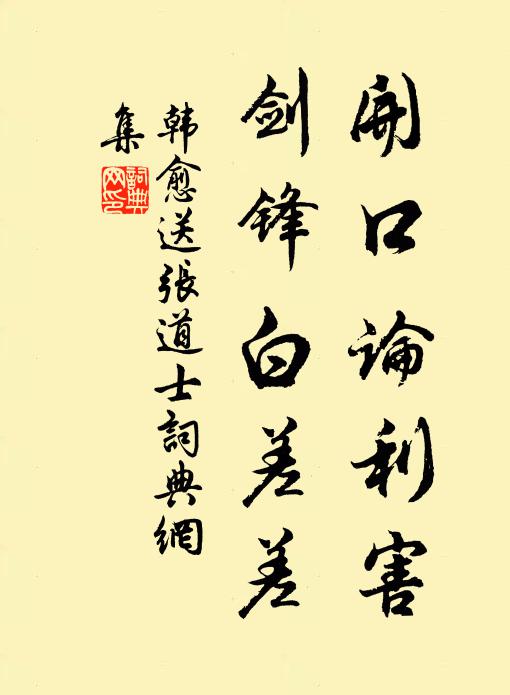 開口論利害
劍鋒白差差
韩愈送張道士詞典網
集
詞典
网印